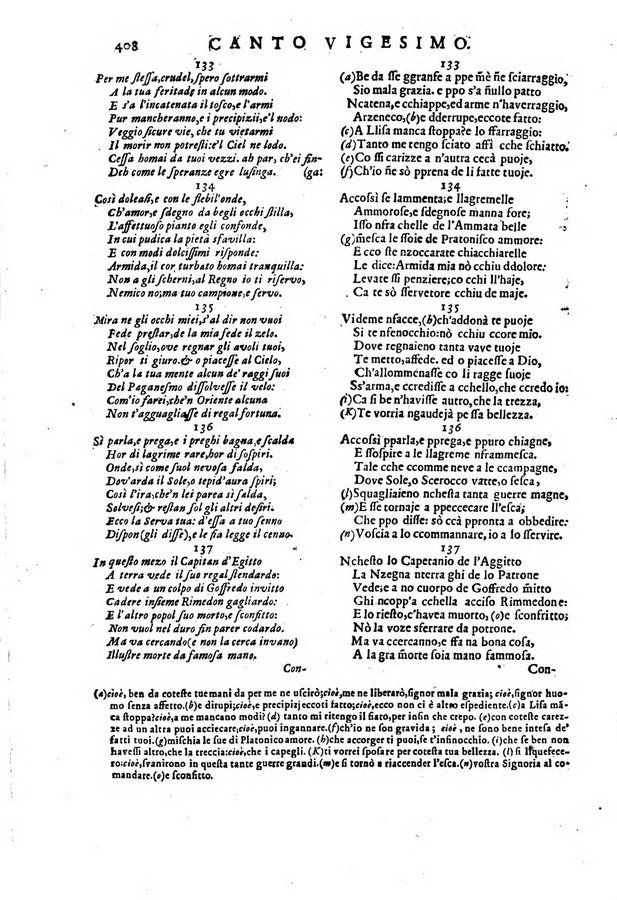 408 CANTO VIGESIMO.
133
Per me ſteſſa,crudel,ſpero ſottrarmi
A la tua feritade in alcun modo.
E s'a l'incatenata il toſco,e l'armi
Pur mancheranno,e i precipizii,e'l nodo:
Veggio ſicure vie, che tu vietarmi
Il morir non potreſti:e'l Ciel ne lodo.
Ceſſa homai da tuoi vezzi. ah par, ch'ei fin-
Deh come le ſperanze egre luſinga. (ga:
134
Così doleaſi,e con le flebil'onde,
Ch'amor,e ſdegno da begli occhi ſtilla,
L'affettuoſo pianto egli confonde,
In cui pudica la pietà sfavilla:
E con modi dolciſſimi riſponde:
Armida,il cor turbato homai tranquilla:
Non a gli ſcherni,al Regno io ti riſervo,
Nemico no;ma tuo campione,e ſervo.
135
Mira ne gli occhi miei,s'al dir non vuoi
Fede preſtar,de la mia fede il zelo.
Nel ſoglio,ove regnar gli avoli tuoi,
Ripor ti giuro.& o piaceſſe al Cielo,
Ch'a la tua mente alcun de' raggi ſuoi
Del Paganeſmo diſſolveſſe il velo:
Com'io farei,che'n Oriente alcuna
Non t'agguagliaſſe di regal fortuna.
136
Sì parla,e prega,e i preghi bagna,e ſcalda
Hor di lagrime rare,hor di ſoſpiri.
Onde,sì come ſuol nevoſa falda,
Dov'arda il Sole,o tepid'aura ſpiri;
Così l'ira,che'n lei parea sì ſalda,
Solveſi;& reſtan ſol gli altri deſiri.
Ecco la Serva tua: d'eſſa a tuo ſenno
Diſpon(gli diſſe),e le fia legge il cenno.
137
In queſto mezo il Capitan d'Egitto
A terra vede il ſuo regal ſtendardo:
E vede a un colpo di Goffredo invitto
Cadere inſieme Rimedon gagliardo:
E l'altro popol ſuo morto,e ſconfitto:
Non vuol nel duro fin parer codardo.
Ma va cercando(e non la cerca invano)
Illuſtre morte da famoſa mano.
Con-
133
(a)Be da ſſe ggranfe a ppe m̃e ñe ſciarraggio,
Sio mala grazia; e ppo s'a ñullo patto
Ncatena,e cchiappe,ed arme n'haverraggio,
Arzeneco,(b)e dderrupe,eccote fatto:
(c)A Lliſa manca ſtoppa?e lo ſfarraggio:
(d)Tanto me tengo ſciato aſſì cche ſchiatto.
(e)Co ſſi carizze a n'autra cecà puoje,
(f)Ch'io ñe sò pprena de li fatte tuoje.
134
Accoſsì ſe lammenta;e llagremelle
Ammoroſe,e ſdegnoſe manna fore;
Iſſo nfra chelle de l'Ammata belle
(g)m̃eſca le ſſoie de Pratoniſco ammore:
E cco ſte nzoccarate chiacchiarelle
Le dice:Armida mia nò cchiu ddolore:
Levate ſſi penziere;co cci ll'haje,
Ca te sò ſſervetore cchiu de maje.
135
Videme nfacce,(h)ch'addonà te puoje
Si te nfenocchio:nò cchiu ccore mio.
Dove regnaieno tanta vave tuoje
Te metto,affede. ed o piaceſſe a Dio,
Ch'allommenaſſe co li ragge ſuoje
Ss'arma,e ccrediſſe a cchello,che ccredo io:
(i)Ca ſi be n'haviſſe autro,che la trezza,
(K)Te vorria ngaudejà pe ſſa bellezza.
136
Accoſsì pparla,e pprega,e ppuro chiagne,
E ſſoſpire a le llagreme nframmeſca.
Tale cche ccomme neve a le ccampagne,
Dove Sole,o Scerocco vatte,o ſeſca,
(l)Squagliaieno ncheſta tanta guerre magne,
(m)E ſſe tornaje a ppeccecare ll'eſca;
Che ppo diſſe: sò ccà ppronta a obbedire:
(n)Voſcia a lo ccommannare, io a lo ſſervire.
137
Ncheſto lo Capetanio de l'Aggitto
La Nzegna nterra ghì de lo Patrone
Vede;e a no cuorpo de Goffredo m̃itto
Ghì ncopp'a cchella acciſo Rimmedone:
E lo rieſto,c'havea muorto, (o)e sconfritto;
Nò la voze sferrare da potrone.
Ma va cercanno,e ſſa na bona coſa,
A la gra m̃orte ſoia mano fammoſa.
Con-
(a)cioè, ben da coteſte tue mani da per me ne uſcirò;cioè,me ne liberarò,ſignor mala grazia; cioè,ſignor huo-
mo ſenza affetto.(b)e dirupi;cioè,e precipizj;eccoti fatto;cioè,ecco non ci è altro eſpediente.(c)a Liſa mã-
ca ſtoppa?cioè,a me mancano modi? (d) tanto mi ritengo il fiato,per inſin che crepo. (e)con coteſte carez-
ze ad un altra puoi acciecare;cioè,puoi ingannare.(f)ch'io ne ſon gravida; cioè, ne ſono bene inteſa de'
fatti tuoi.(g)miſchia le ſue di Platonico amore. (h)che accorger ti puoi,ſe t'infinocchio. (i)che ſe ben non
haveſſi altro,che la treccia;cioè,che i capegli. (K)ti vorrei ſpoſare per coteſta tua bellezza. (l) ſi liquefece-
ro:cioè,ſvanirono in queſta tante guerre grandi.(m)e ſi tornò a riaccender l'eſca.(n)voſtra Signoria al co-
mandare.(o)e ſconfitto.